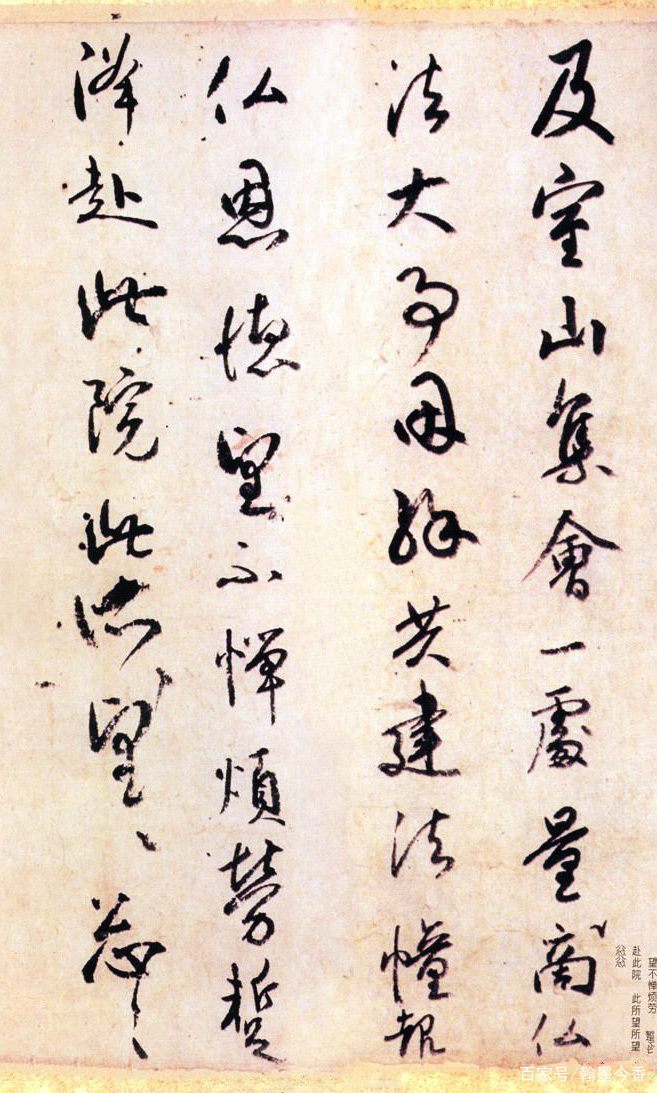 及室山集會一處量商仏
法大事因緣共建法幢報
仏恩德望不憚煩勞蹔
降赴此院此所望〻忩〻
望不惮烦劳
赴此院 此所望所望
忩忩
百家号/翰墨今香